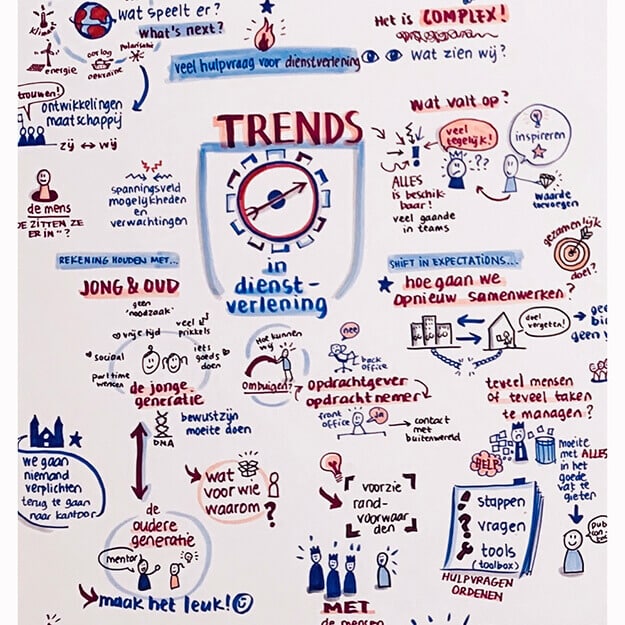 wat speelt er?
what's next?
klimaat
energie
oorlog
oekraïne
polarisatie
veel hulpvraag voor dienstverlening
Het is COMPLEX!
wat zien wij?
trouwen!
ontwikkelingen
maatschappij
zij ↔ wij
de mens
DE ZITTEN ZE
ER IN"?
spanningsveld
mogelijkheden
en
verwachtingen
TRENDS
in
dienst-
verlening
wat valt op?
veel
tegelijk!
??
inspireren
ALLES
is beschik-
baar!
veel gaande
in teams
waarde
toevoegen
gezamenlijk
doel?
REKENING HOUDEN MET...
JONG & OUD
geen
"noodzaak"
vrije tijd
veel
prikkels
sociaal
iets
goeds
doen
parttime
werken
de jonge
generatie
DNA
bewustzijn
moeite doen
we gaan
niemand
verplichten
terug te gaan
naar kantoor
de
oudere
generatie
mentor
maak het leuk!
wat
voor wie
waarom?
Hoe kunnen
wij
ombuigen?
SHIFT IN EXPECTATIONS...
hoe gaan we
opnieuw samenwerken?
doel
vergeten!
geen
nee
back
office
opdrachtgever
opdrachtnemer
front
office
ja
contact
met
buitenwereld
voorzie
rand-
voorwaar
den
MET
de mensen
teveel mensen
of teveel taken
te managen?
HELP
moeite
met ALLES
in het
goede
vat te
gieten
stappen
vragen
tools
(toolbox)
HULPVRAGEN
ORDENEN